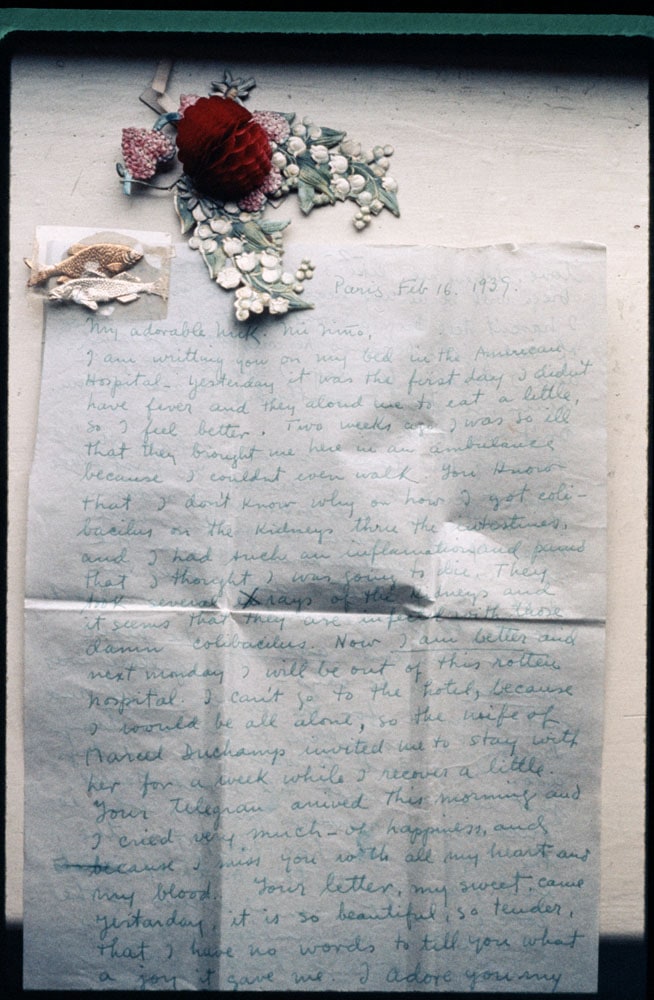 Paris, Feb 16. 1939.
My adorable Nick. Niño,
I am writting you on my bed in the American
Hospital. Yesterday it was the first day I didn't
have fever and they aloud me to eat a little,
so I feel better. Two weeks ago I was so ill
that they brought me here in an ambulance
because I couldnt even walk. You know
that I don't know why or how I got coli-
bacilus on the kidneys thru the intestines,
and I had such an inflamation and pains
that I thought I was going to die. They
took several X rays of the kidneys and
it seems that they are infected with those
damn colibacilus. Now I am better and
next monday I will be out of this rotten
hospital. I can't go to the hotel, because
I would be all alone, so the wife of
Marcel Duchamp invited me to stay with
her for a week while I recover a little.
Your telegram arived this morning and
I cried very much – of happiness, and
because I miss you with all my heart and
my blood. Your letter, my sweet, came
yestarday, it is so beautiful, so tender,
that I have no words to tell you what
a joy it gave me. I adore you my